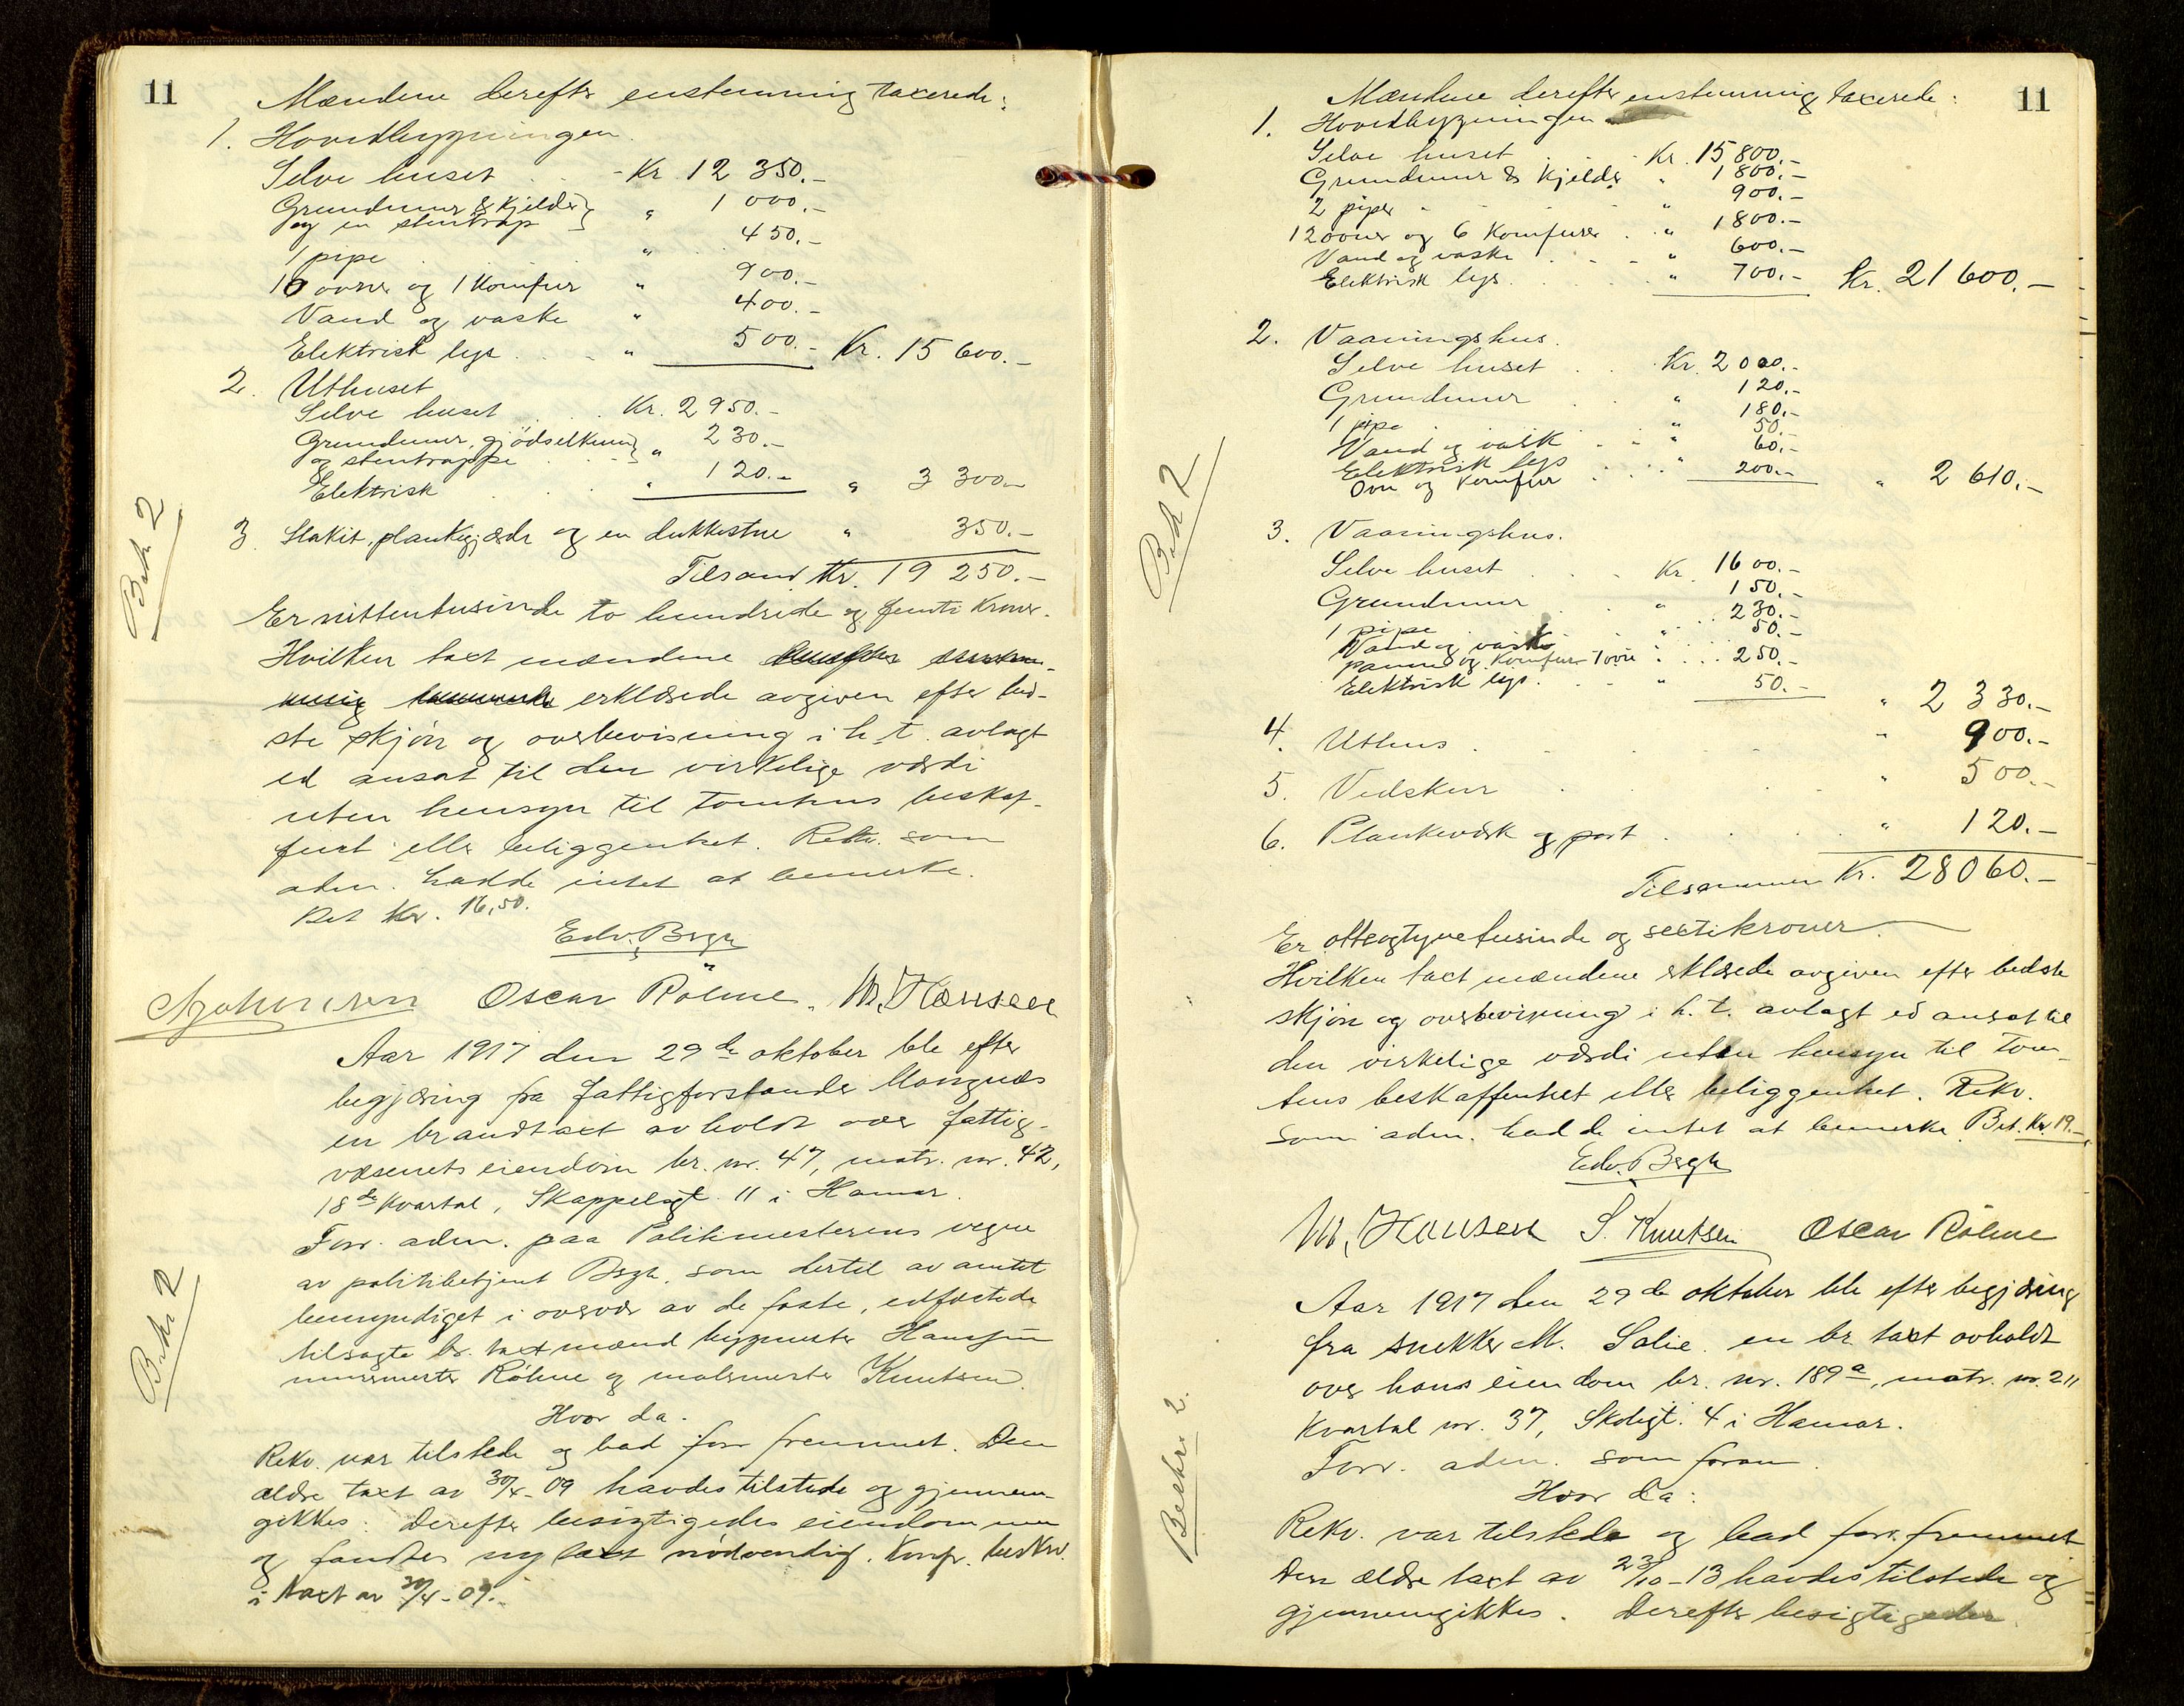 11
Mændene derefter enstemmig taxerede:
1. Hovedbygningen.
Selve huset . . - Kr 12 350.-
Grundmur & Kjelder } " 1 000.-
og en stentrap
1 pipe . . " 450.-
10 ovner og 1 Komfur " 900.-
Vand og vaske " 400.-
Elektrisk lys . . - " 500.- Kr. 15 600.-
2. Uthuset
Selve huset . . Kr. 2 950.-
Grundmur, gjødselkum } " 230.-
og stentrappe
Elektrisk . . . " 120.- " 3 300.-
3. Stakit, plankegjærde og en dukkestue " 350.-
Tilsam̅ Kr. 19 250.-
Er nittentusinde to hundrede og femti Kroner.
Hvilken taxt mændene
erklærede avgiven efter bed-
ste skjøn og overbevisning i h. t. avlagt
ed ansat til den virkelige værdi
uten hensyn til tomtens beskaf-
fenh. eller beliggenhet. Rekv. som
aden. hadde intet at bemerke.
Bet Kr. 16,50.
Edv. Bergh
Johansen Oscar Rølme. M. Hansen
Aar 1917 den 29de oktober ble efter
begjæring fra fattigforstander Mangnæs
en brandtaxt avholdt over fattig-
væsenets eiendom br. nr. 47, matr. nr. 42,
18de Kvartal, Skappelsgt. 11 i Hamar.
Forr. aden. paa Politimesterens vegne
av politibetjent Bergh, som dertil av amtet
bemyndiget i overvær av de faste, edfæstede
tilsagte br. taxtmænd bygmester Hansen
murermester Rølme og malermester Knutsen.
Hvor da.
Rekv. var tilstede og bad forr fremmet. Den
ældre taxt av 30/4-09 havdes tilstede og gjennem-
gikkes. Derefter besigtigedes eiendommen
og fandtes ny taxt nødvendig. Konfr. beskr.
i taxt av 30/4-09.
Bek 2
Bekr 2
11
Mændene derefter enstemmig taxerede:
1. Hovedbygningen
Selve huset . . . Kr. 15 800.-
Grundmur & Kjelder " 1 800.-
2 piper - - - " 900.-
12 ovner og 6 Komfurer . " 1 800.-
Vand og vaske . . - " 600.-
Elektrisk lys . . . " 700.- Kr. 21 600.-
2. Vaaningshus.
Selve huset . . Kr. 2 000.-
Grundmur . . " 120.-
1 pipe . . " 180.-
Vand og vask . . " 50.-
Elektrisk lys . . " 60.-
Ovn og Komfur . . . 200.- " 2 610.-
3. Vaaningshus.
Selve huset . . . Kr. 1600.-
Grundmur . " 150.-
1 pipe . " 230.-
Vand og vaske . . " 50.-
panne og Komfur 1 ovn " . . 250.-
Elektrisk lys. - - " 50.- " 2 330.-
4. Uthus . . . . " 900.-
5. Vedskur . . . " 500.-
6. Plankeværk og port . . . " 120.-
Tilsammen Kr. 28060.-
Er otteogtyvetusinde og sextikroner.
Hvilken taxt mændene erklærede avgiven efter bedste
skjøn og overbevisning i h. t. avlagt ed ansat til
den virkelige værdi uten hensyn til tom-
tens beskaffenhet eller beliggenhet. Rekv.
som aden. hadde intet at bemerke. Bet. Kr 19.-
Edv. Bergh
M. Hansen S. Knutsen Oscar Rølme
Aar 1917 den 29de oktober ble efter begjæring
fra snekker M. Solie en br. taxt avholdt
over hans eiendom br. nr. 189a, matr. nr. 211
Kvartal nr. 37, Skolegt. 4 i Hamar.
Forr. aden. som foran.
Hvor da:
Rekv. var tilstede og bad forr. fremmet
Den ældre taxt av 23/10-13 havdes tilstede og
gjennemgikkes. Derefter besigtigedes
Bek 2
Beskr. 2.